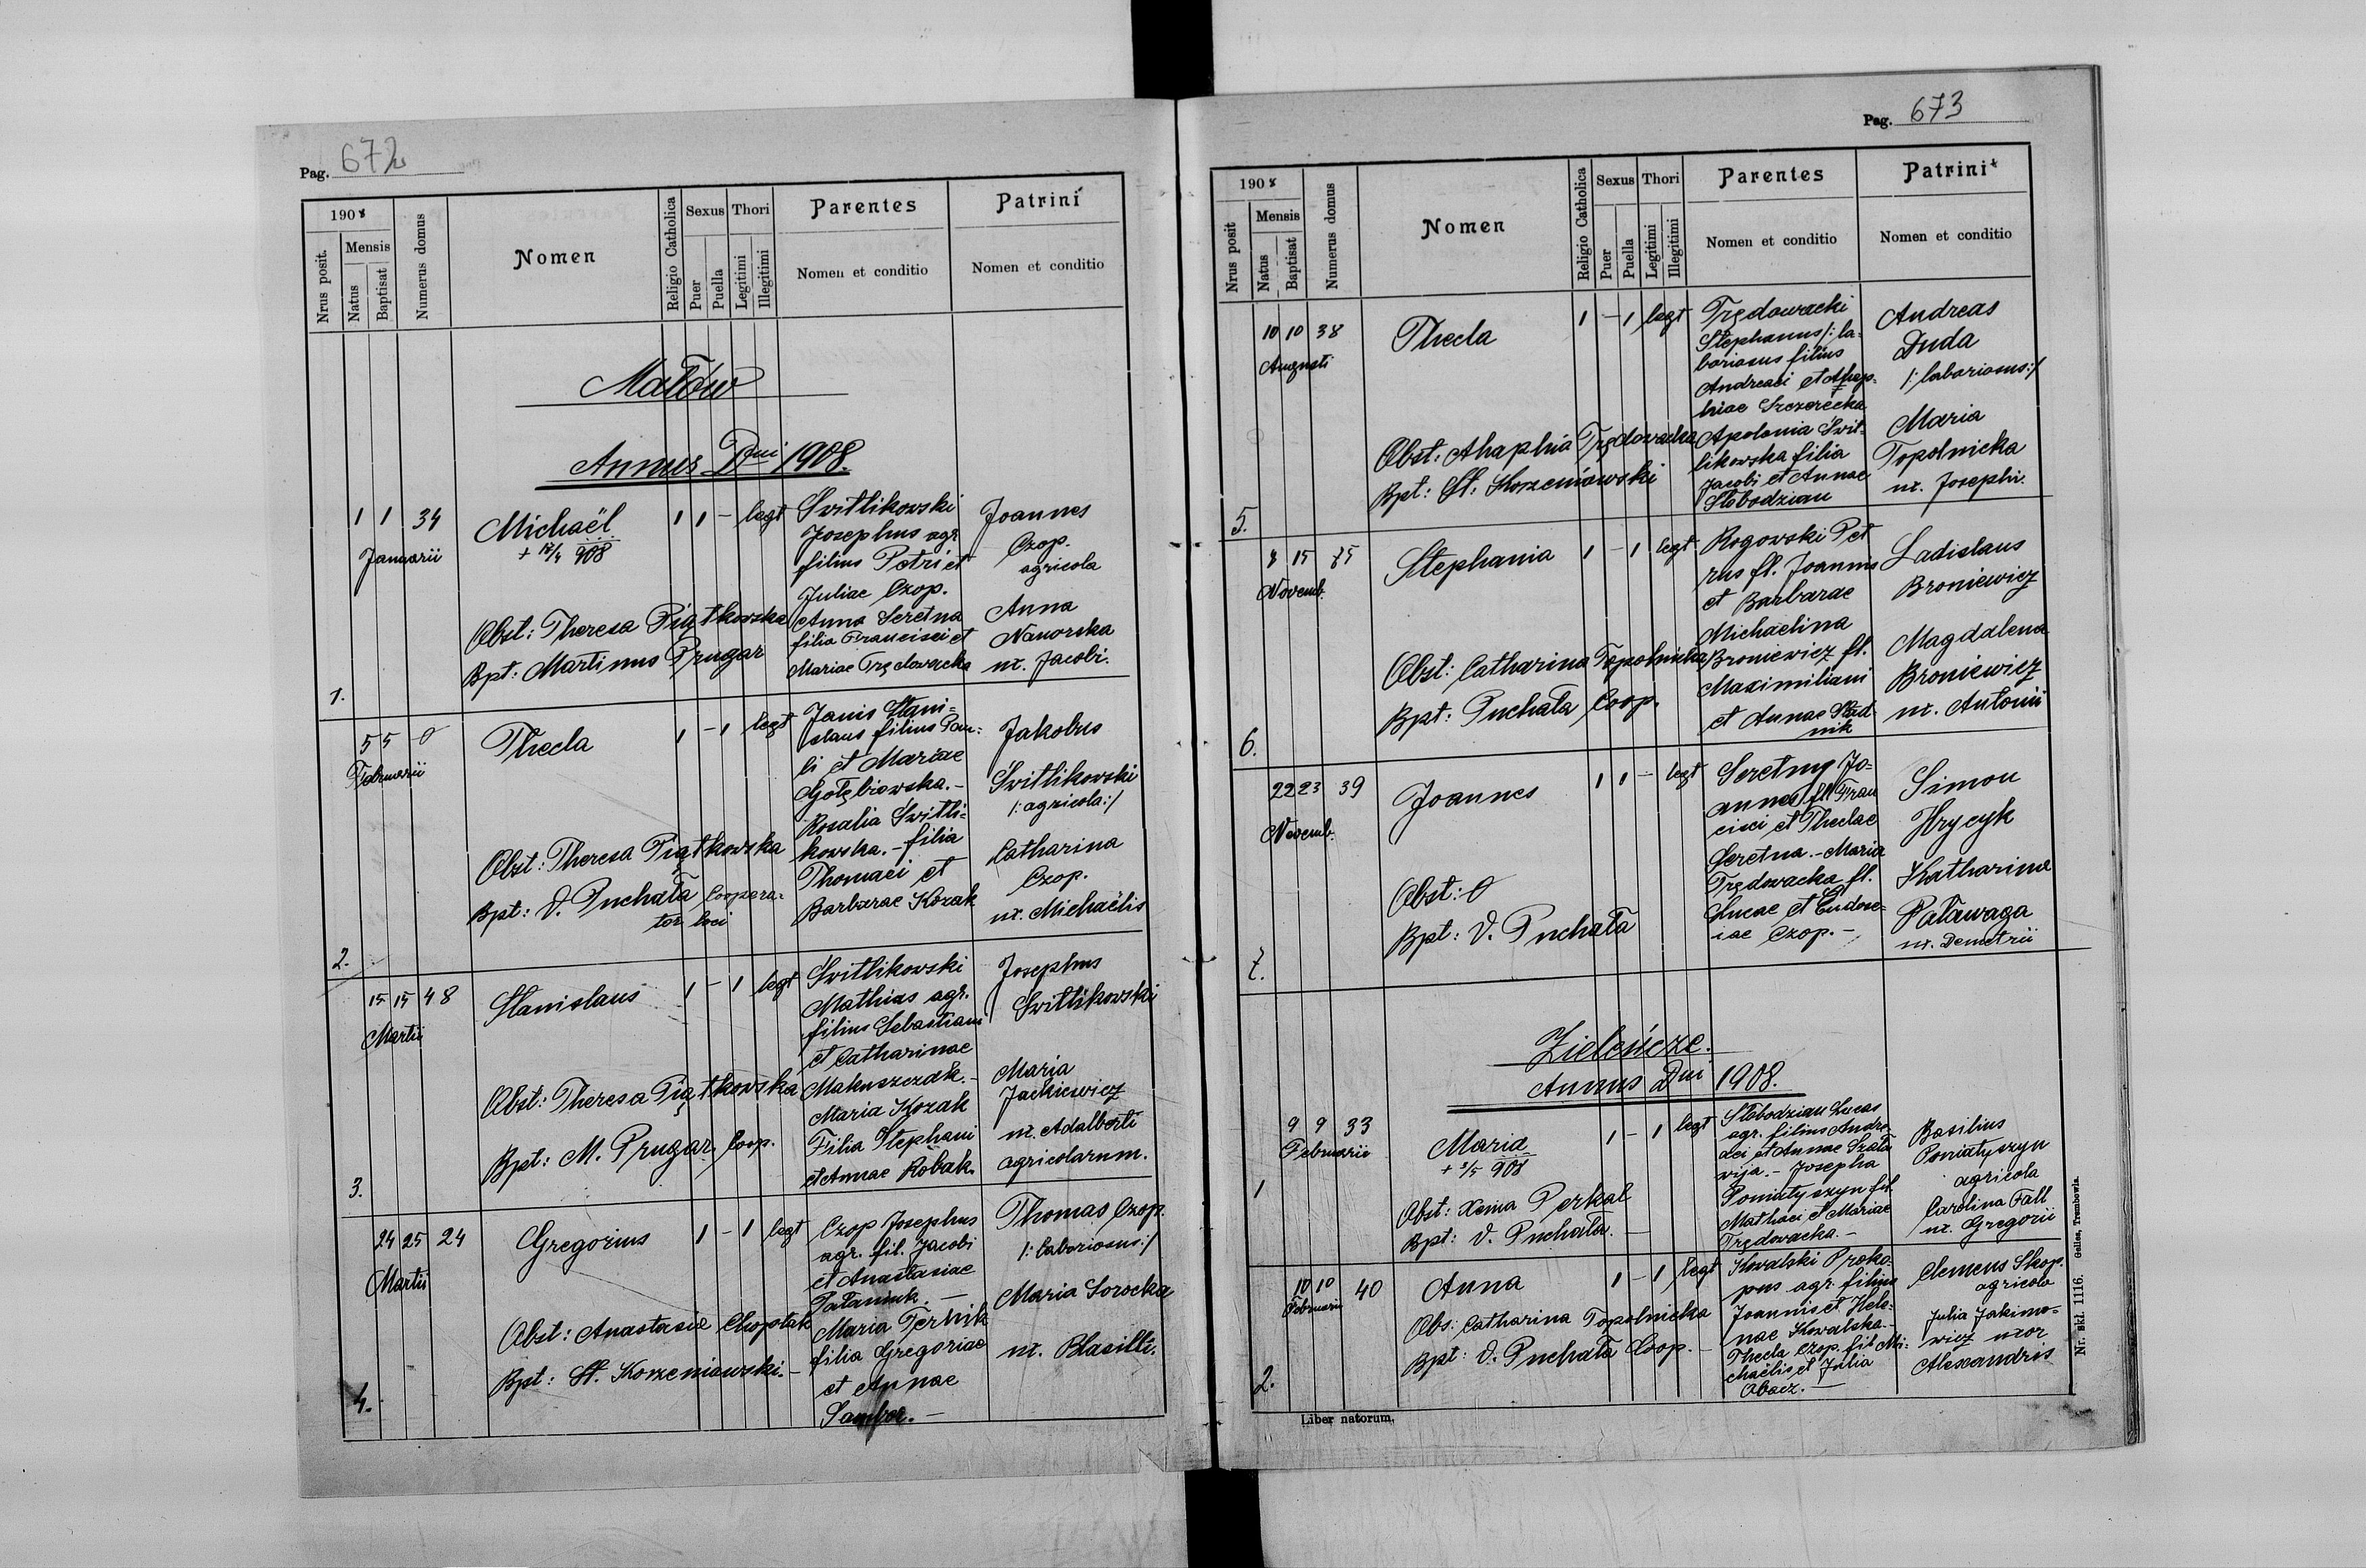 Pag. 672
1908
Nrus posit.
Mensis
Natus
Baptisat
Numerus domus
Nomen
Religio Catholica
Sexus
Puer
Puella
Thori
Legitimi
Illegitimi
Parentes
Nomen et conditio
Patrini
Nomen et conditio
Małów
Annus Dni 1908.
1 1 34
Januarii
Michaël
+ 908
1 1 - legt
Switlikowski
Josephus agr
filius Petri et
Juliae Czop.
Anna Seretna
filia Francisci et
Mariae Trędowacka
Joannes
Czop.
agricola
Anna
Naworska
ux. Jacobi.
Obst: Theresa Piątkowska
Bpt: Martinus Prugar
1.
5 5 0
Februarii
Thecla
1 - 1 legt
Janis Stani=
slaus filius Pau=
li et Mariae
Gołębiowska.-
Rosalia Switli=
kowska.- filia
Thomaei et
Barbarae Kozak
Jakobus
Switlikowski
/:agricola:/
Catharina
Czop.
ux. Michaëlis
Obst: Theresa Piątkowska
Bpt: V. Puchała Coopera=
tor loci
2.
15 15 48
Martii
Stanislaus
1 - 1 legt
Switlikowski
Mathias agr.
filius Sebastiani
et Catharinae
Makuszczak.-
Maria Kozak
Filia Stephani
et Annae Robak.
Josephus
Switlikowski
Maria
Jackiewicz
ux. Adalberti
agricolarum.
Obst: Theresa Piątkowska
Bpt: M. Prugar Coop.
3.
24 25 24
Martii
Gregorius
1 - 1 legt
Czop Josephus
agr. fil. Jacobi
et Anastasiae
Pataniuk.-
Maria Ternik
filia Gregoriae
et Annae
Sambor.-
Thomas Czop.
/:laboriosus:/
Maria Sorocka
ux. Blasilli.
Obst: Anastasia Choptak
Bpt: St. Korzeniowski.-
4.
Pag. 673
1908
Nrus posit
Mensis
Natus
Baptisat
Numerus domus
Nomen
Religio Catholica
Sexus
Puer
Puella
Thori
Legitimi
Illegitimi
Parentes
Nomen et conditio
Patrini
Nomen et conditio
10 10 38
Augusti
Thecla
1 - 1 legt
Trędowacki
Stephanus /:la=
boriosus filius
Andreasi et Ahap=
hiae Szczerecka
Apolonia Swit=
likowska filia
Jacobi et Annae
Słobodzian
Andreas
Duda
/:laboriosus:/
Maria
Topolnicka
ux. Josephi.
Obst: Ahaphia Trędowacka
Bpt: St. Korzeniowski
5.
8 15 75
Novemb.
Stephania
1 - 1 legt
Rogowski Pet
rus fl. Joannis
et Barbarae
Michaelina
Broniewicz fl.
Maximiliani
et Annae
nik
Ladislaus
Broniewicz
Magdalena
Broniewicz
ux. Antonii
Obst: Catharina Topolnicka
Bpt: Puchała Coop.
6.
22 23 39
Novemb.
Joannes
1 1 - legt
Seretny Jo=
annes fl. Fran
cisci et Theclae
Seretna.- Maria
Trędowacka fl.
Lucae et Eudoc=
iae Czop.-
Simon
Hrycyk
Katharina
Patawaga
ux. Demetrii
Obst: 0
Bpt: V. Puchała
7.
Zieleńcze.
Annus Dni 1908.
9 9 33
Februarii
Maria
+ 908
1 - 1 legt
Słobodzian Lucas
agr. filius Andre=
aei et Annae Szała
wija.- Josepha
Poniatyszyn fil.
Mathaei et Mariae
Trędowacka.-
Basilius
Poniatyszyn
agricola
Carolina Fall
ux. Gregorii
Obst: Xenia Perkal
Bpt: V. Puchała.
1
10 10 40
Februarii
Anna
1 - 1 legt
Kowalski Proko=
pus agr. filius
Joannis et Hele=
nae Kowalska.-
Thecla Czop. fil. Mi=
chaëlis et Julia
Obacz.-
Clemens Skop.
agricola
Julia Jakimo=
wicz uxor
Alexandris
Obs: Catharina Topolnicka
Bpt: V. Puchała Coop.-
2.
Liber natorum.
Nr. skł. 1116. Gelles, Trembowla.